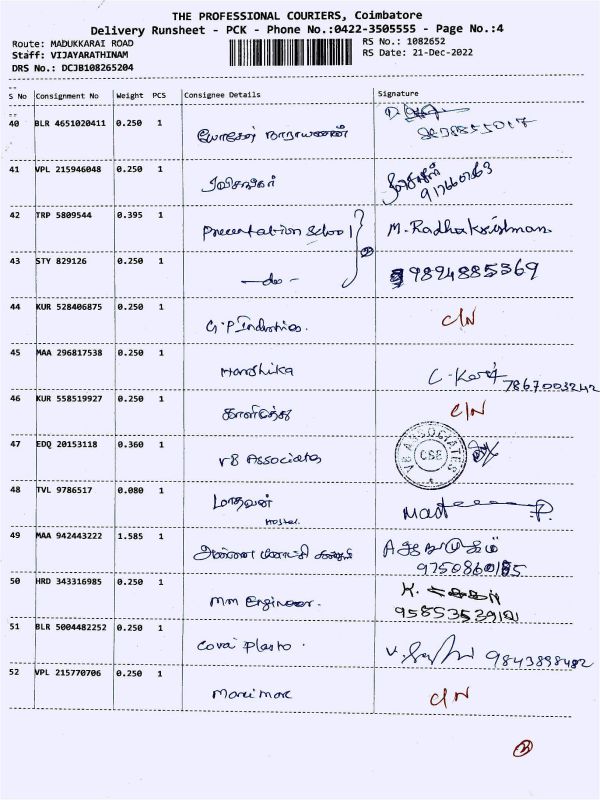 THE PROFESSIONAL COURIERS, Coimbatore
Delivery Runsheet - PCK - Phone No.:0422-3505555 - Page No.:4
Route: MADUKKARAI ROAD
RS No.: 1082652
Staff: VIJAYARATHINAM
RS Date: 21-Dec-2022
DRS No.: DCJB108265204
S No Consignment No Weight PCS Consignee Details Signature
40 BLR 4651020411 0.250 1 நாராயணன்
41 VPL 215946048 0.250 1 ரவிசங்கர்
42 TRP 5809544 0.395 1 Presentation School M. Radhakrishnan
43 STY 829126 0.250 1 —do— 9894885369
44 KUR 528406875 0.250 1 G.P Industries. C/N
45 MAA 296817538 0.250 1 Harshika 7867003242
46 KUR 558519927 0.250 1 காளிமுத்து C/N
47 EDQ 20153118 0.360 1 VB Associates VB ASSOCIATES CBE
48 TVL 9786517 0.080 1 மாதவன்
Hostel
49 MAA 942443222 1.585 1 அண்ணை 
50 HRD 343316985 0.250 1 MM Engineer. K.
51 BLR 5004482252 0.250 1 Covai Plasto. 9843898482
52 VPL 215770706 0.250 1 C/N